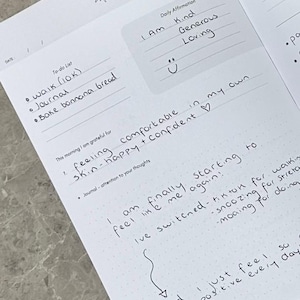 Daily Affirmation
I Am Kind
Generous
Loving
To do List
• Walk (10K)
• Journal
• Bake bannana bread
This morning I am grateful for
feeling comfortable in my own
skin - happy + confident ♡
Journal - attention to your thoughts
I am finally starting to
feel like me again!
I've switched
for
I just feel so
positive every day